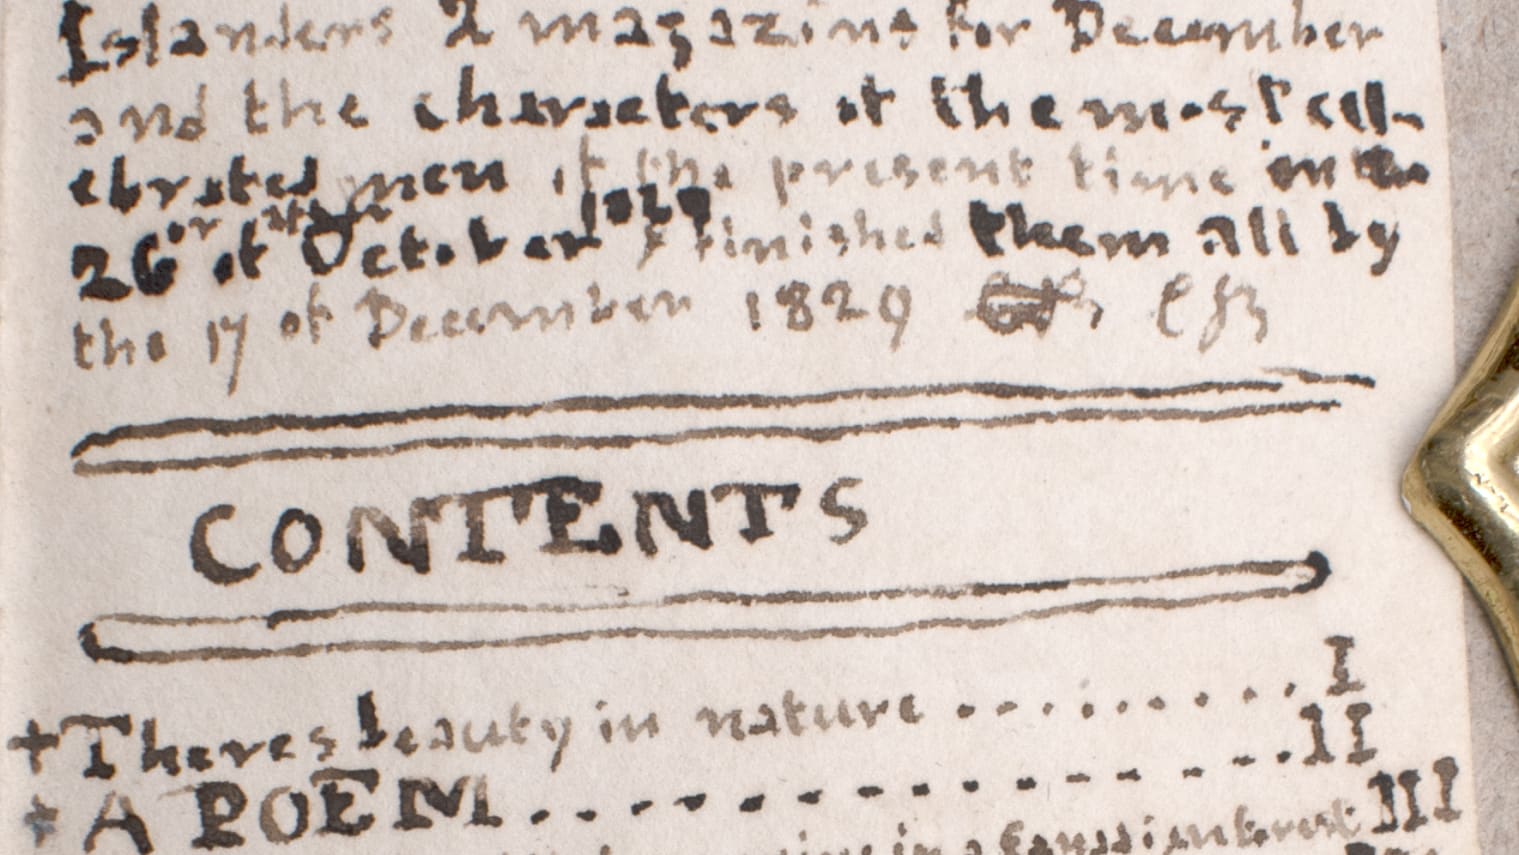 Islanders 2 magazine for December
and the characters of the most cell-
ebrated men of the present time on the
26 of October 1829 I finished them all by
the 17 of December 1829
CONTENTS
+ Theres beauty in nature . . . . . . . . . . I
+ A POEM . . . . . . . . . . . . . . II
in a III